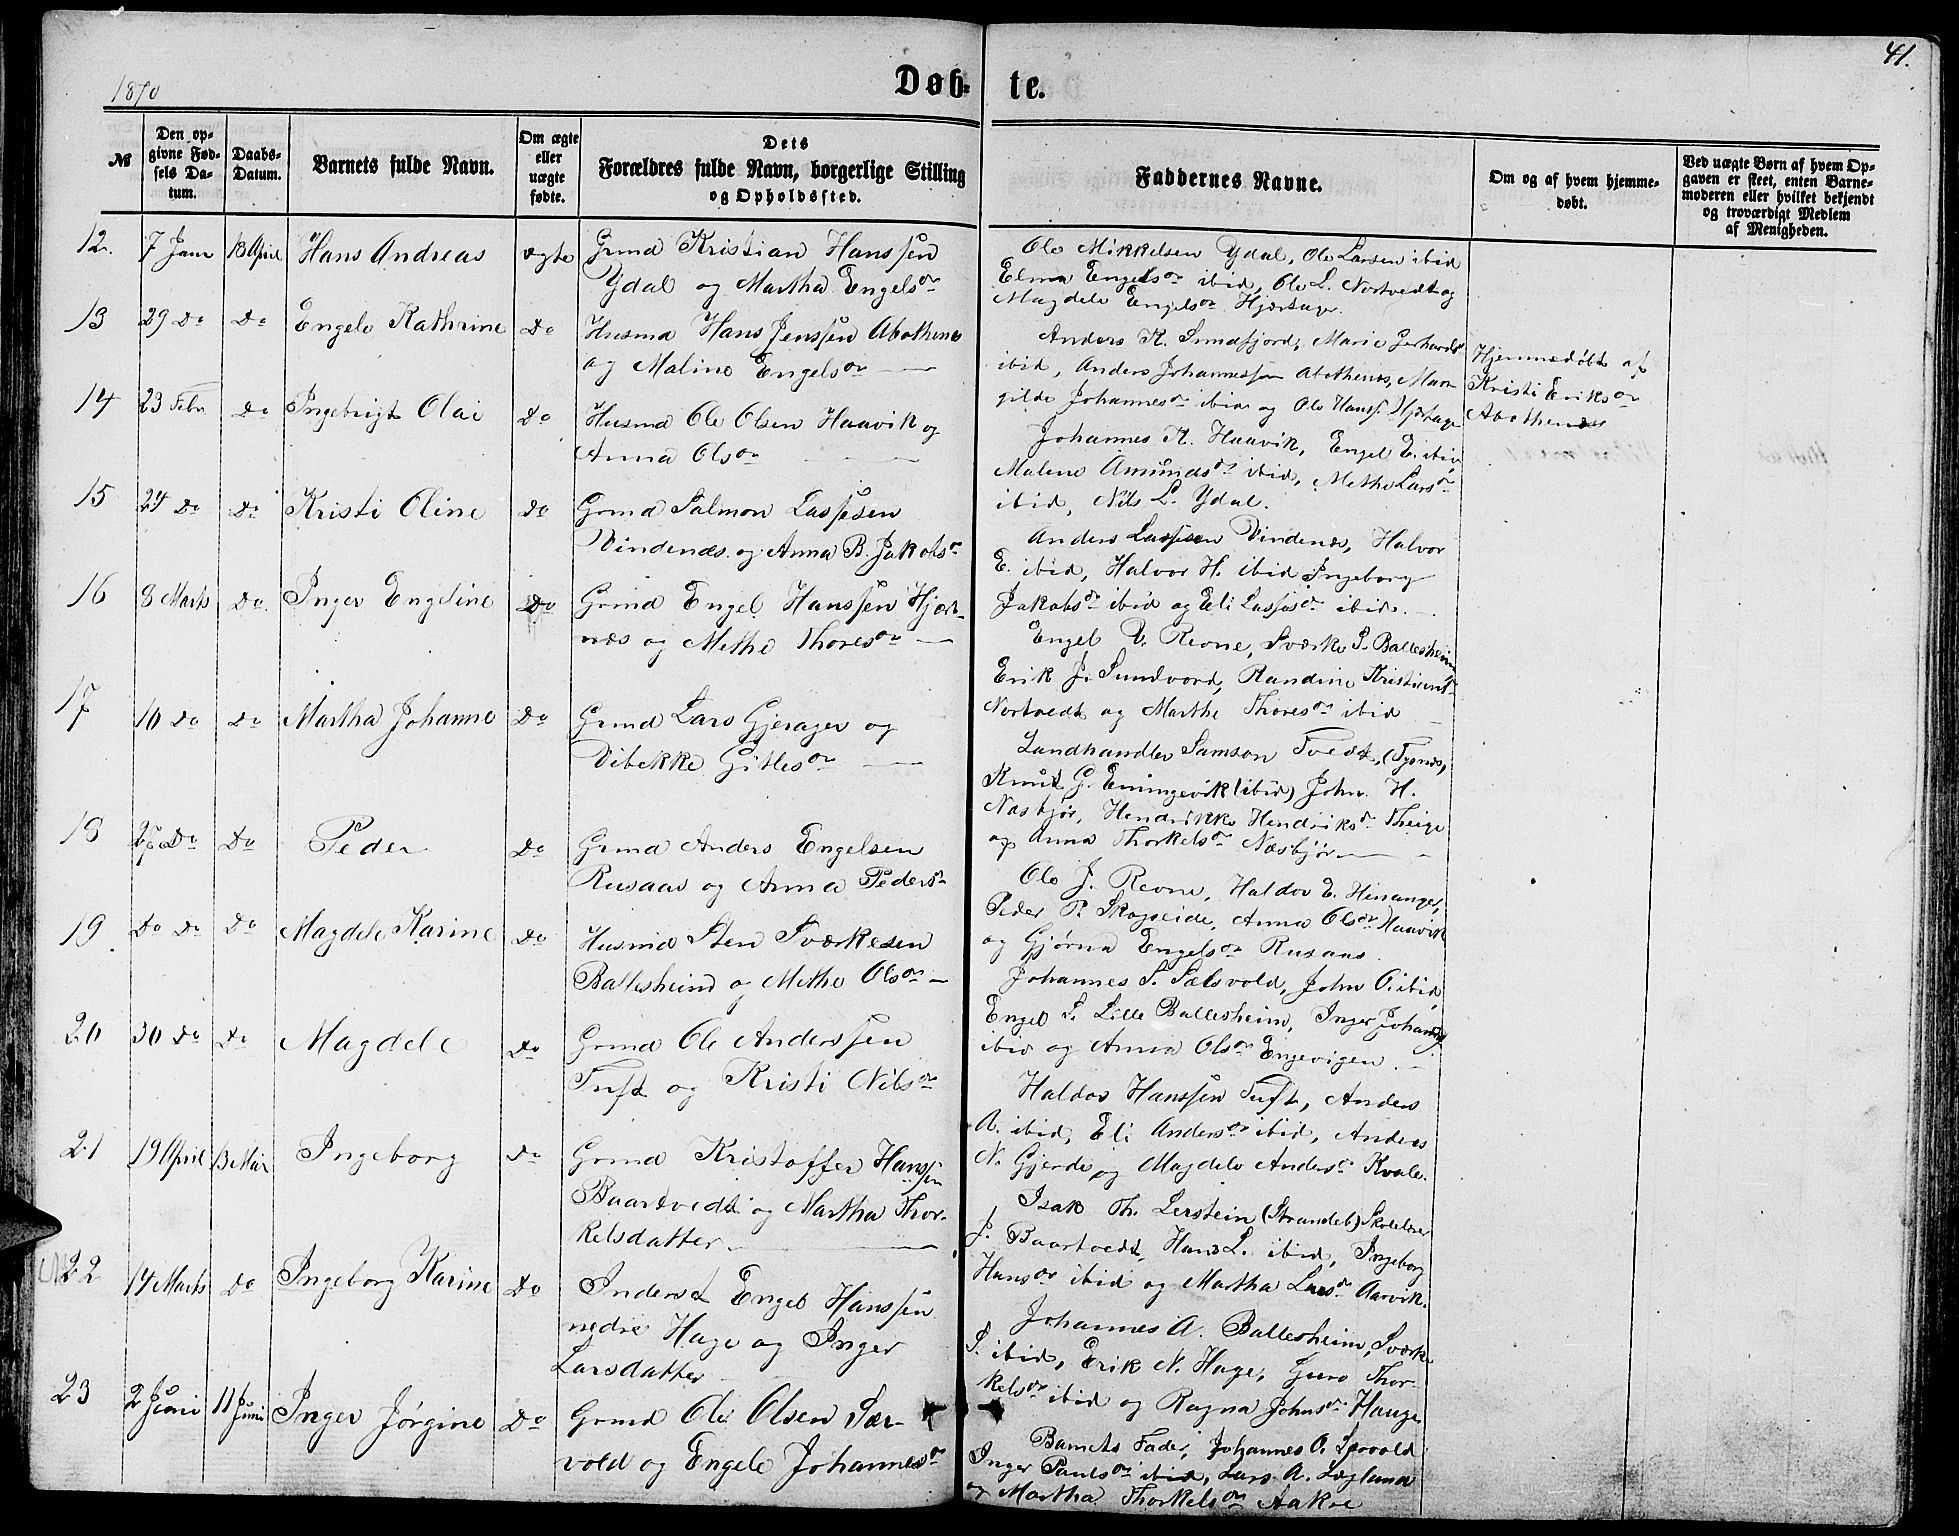 41.
1870
Døb- te.
№
Den op-
givne Fød-
sels Da-
tum.
Daabs-
Datum.
Barnets fulde Navn.
Om ægte
eller
uægte
fødte.
Dets
Forældres fulde Navn, borgerlige Stilling
og Opholdssted.
Faddernes Navne.
Om og af hvem hjemme-
døbt.
Ved uægte Børn af hvem Op-
gaven er skeet, enten Barne-
moderen eller hvilket bekjendt
og troværdigt Medlem
af Menigheden.
12. 7 Janr 18 April Hans Andreas ægte Grmd Kristian Hanssen
Ydal og Martha Engelsdr
Ole Mikkelsen Ydal, Ole Larsen ibid
Elma Engelsdr ibid, Ole L. Nortvedt og
Magdele Engelsdr Hjærtager
13 29 Do Do Engele Kathrine Do Husmd Hans Jenssen Abothnes
og Maline Engelsdr
Anders K. Simafjord, Marie Gerhardsdr
ibid, Anders Johannessen Abothnes, Mar-
gilde Johannesdr ibid og Ole Hanss. Hjærtager
Hjemmedøbt af
Kristi Eriksdr
Abothnes
14 23 Febr Do Ingebrigt Olai Do Husmd Ole Olsen Haavik og
Anna Olsdr
Johannes K. Haavik, Engel E. ibid
Malene Amundsdr ibid, Methe Larsdr
ibid, Nils L. Ydal.
15 24 Do Do Kristi Oline Do Grmd Salmon Lassesen
Vindenæs og Anna B. Jakobsdr
Anders Lassesen Vindenæs, Halvor
E. ibid, Halvor H. ibid Ingeborg
Jakobsdr ibid og Eli Lassesdr ibid.
16 8 Marts Do. Inger Engeline Do Grmd Engel Hanssen Hjær-
næs og Methe Thoresdr
Engel V. Revne, Sværke S. Ballesheim
Erik J. Sundvord, Randine Kristiensdr
Nortvedt og Marthe Thoresdr ibid
17 10 Do Do Martha Johanne Do Grmd Lars Gjerager og
Vibekke Gitlesdr
Landhandler Samson Tvedt, (Tysnes,
Knut G. Eningevik (ibid) John H.
Næsbjør, Hendrikke Hendriksdr Theige
og Anna Thorkelsdr Næsbjør
18 27 Do Do Peder Do Grmd Anders Engelsen
Rusaas og Anna Pedersdr
Ole J. Revne, Haldor E. Henanger,
Peder P. Skogseide, Anna Olsdr Haavik
og Gjørna Engelsdr Rusaas
19 Do Do Do Magdele Karine Do Husmd Sten Sværkesen
Ballesheim og Methe Olsdr
Johannes S. Sælsvold, John O. ibid,
Engel S. Lille Ballesheim, Inger Johansdr
ibid og Anna Olsdr Engevigen
20 30 Do Do Magdele Do Grmd Ole Anderssen
Tuft og Kristi Nilsdr
Haldor Hanssen Tuft, Anders
A. ibid, Eli Andersdr ibid, Anders
N. Gjerde og Magdele Andersdr Kvale.
21 19 April 13 Mai Ingeborg Do Grmd Kristoffer Hanssen
Baartvedt og Martha Thor-
kelsdatter
Isak Th. Lerstein (Strandeb) Skolelærer
J. Baartvedt, Hans L. ibid, Ingeborg
Hansdr ibid og Martha Larsdr Aarvik.
22 14 Marts Do Ingeborg Karine Do Inderst Engel Hanssen
nedre Hage og Inger
Larsdatter
Johannes A. Ballesheim, Sværke
S. ibid, Erik N. Hage, Guro Thor-
kelsdr ibid og Ragna Johnsdr Hauge
23 2 Juni 11 Juni Inger Jørgine Do Grmd Ole Olsen Sær-
vold og Engele Johannesdr
Barnets Fader, Johannes O. Særvold
Inger Paulsdr ibid, Lars A. Læglund
og Martha Thorkelsdr Aakre